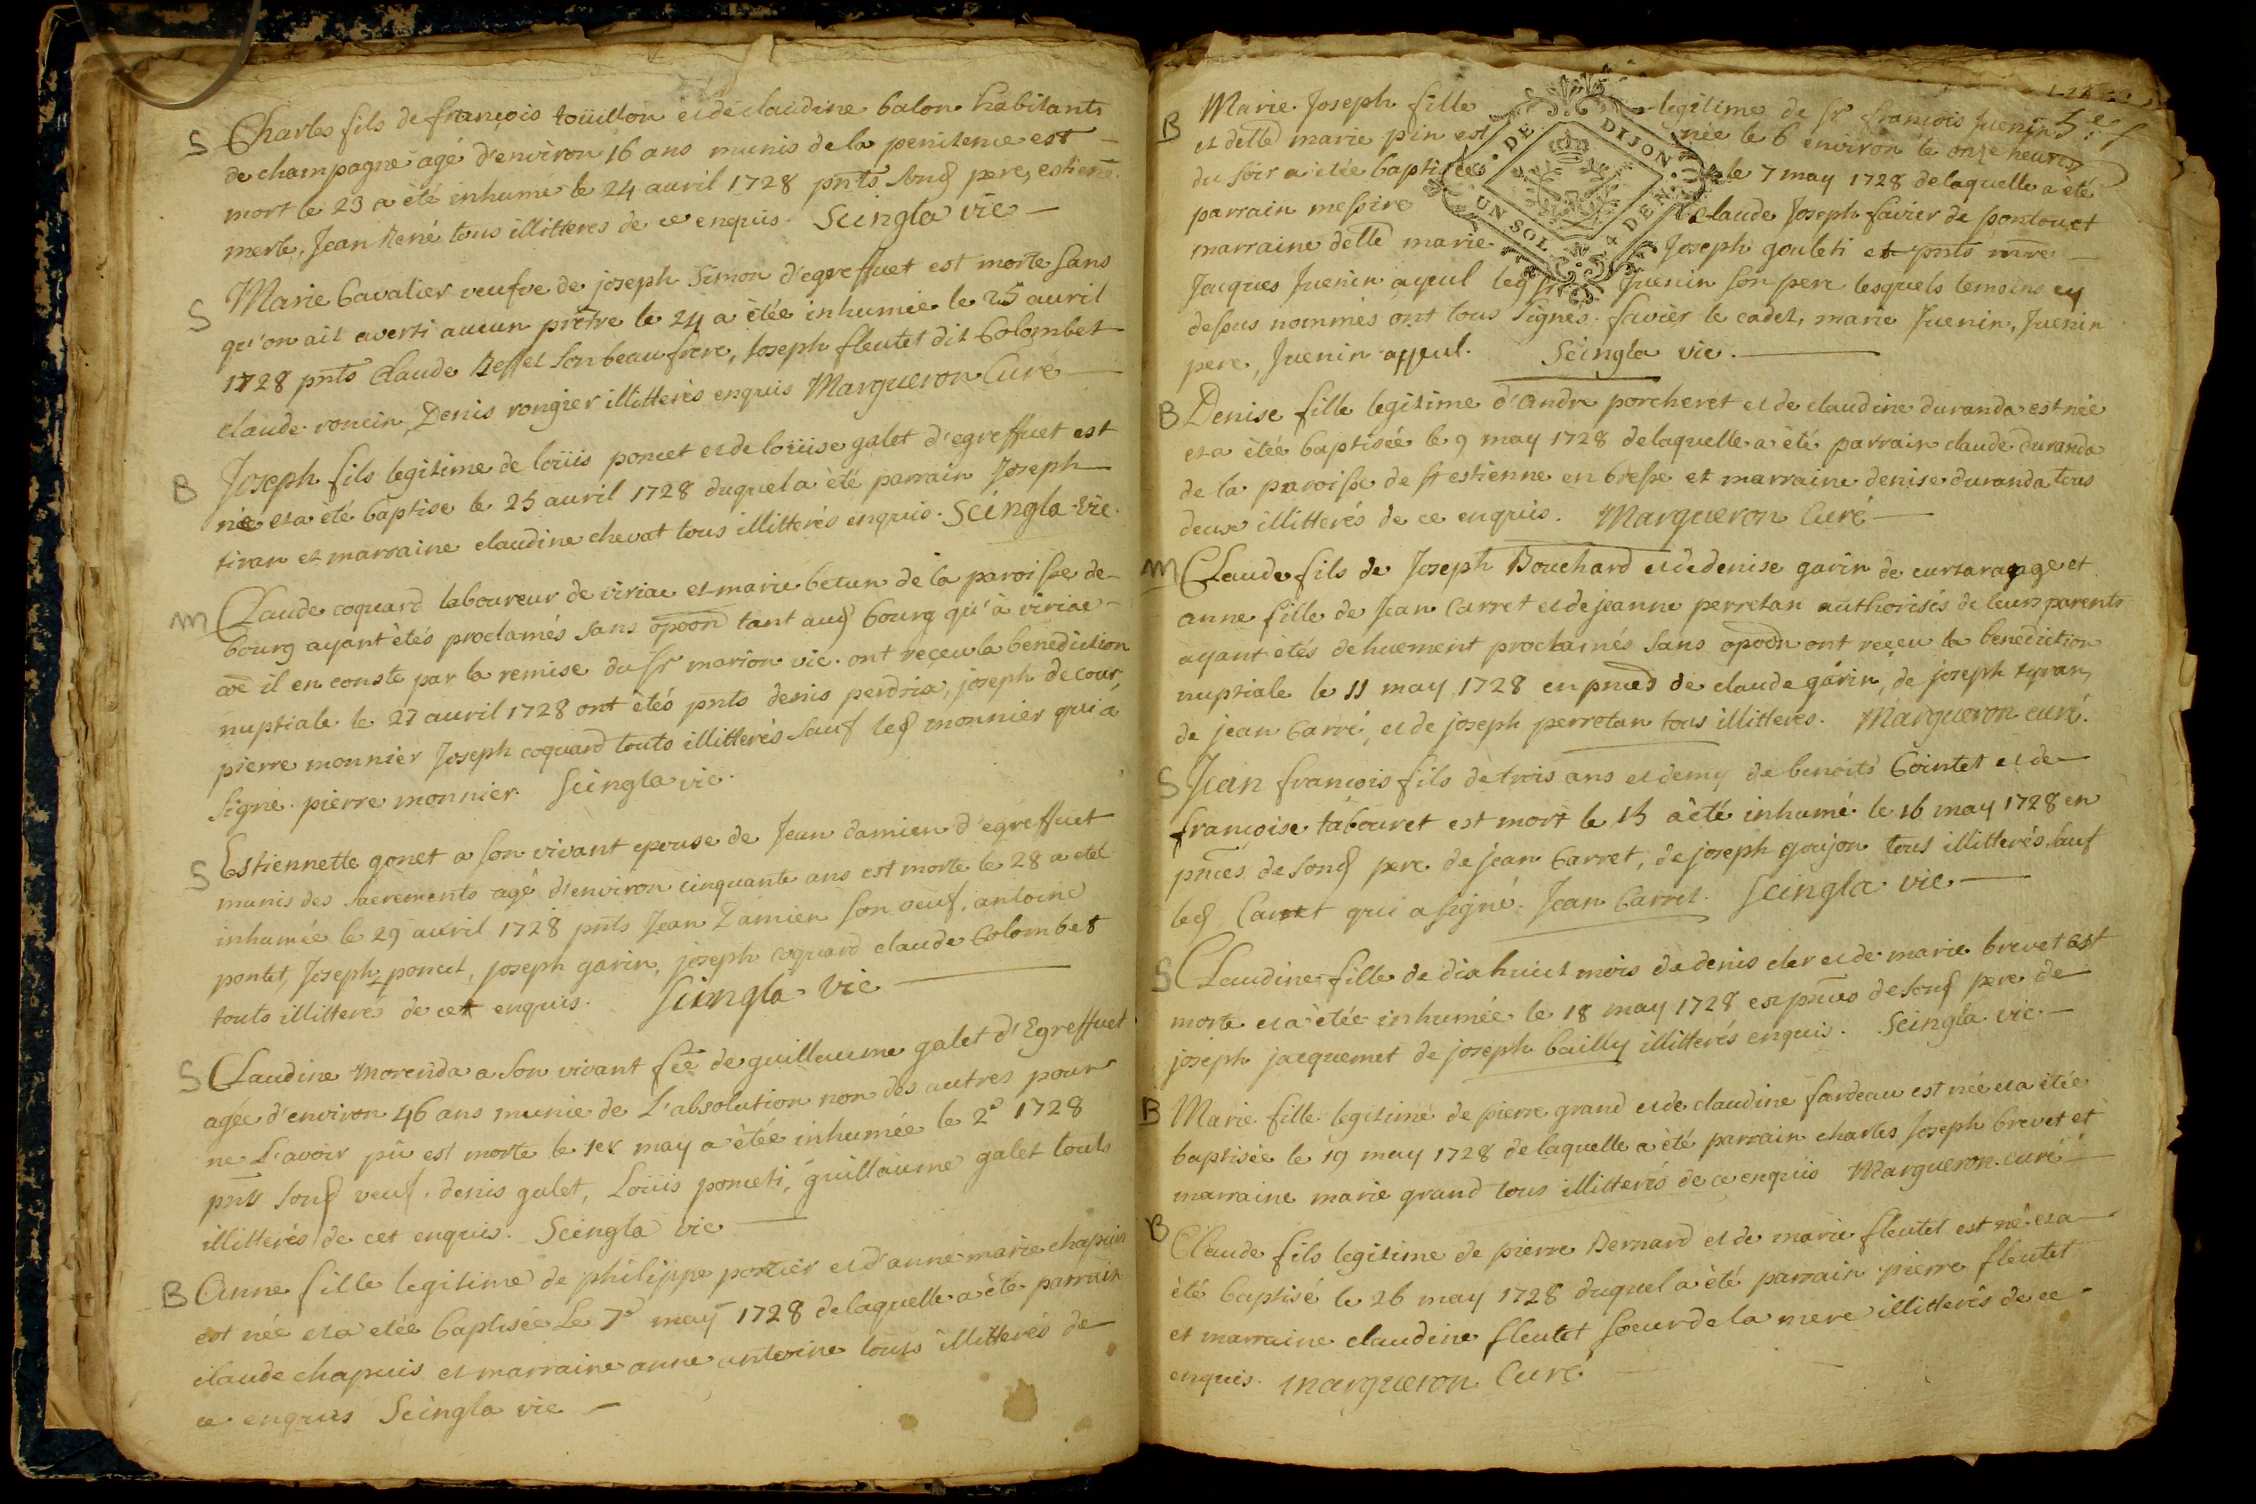 S Charles fils de françois toüillon et de claudine balon habitants
de champagne agé d'environ 16 ans munis de la penitence est
mort le 23 a été inhumé le 24 auril 1728 pnts sond pere, estiene
merle, Jean René tous illitteres de ce enquis. Seingla vic
S Marie Cavalier veufve de joseph Simon d'egreffuet est morte sans
qu'on ait averti aucun prêtre le 24 a étée inhumée le 25 auril
1728 pnts Claude Reffet son beau frere, Joseph fleutet dit Colombet
claude roncin, Denis rongier illitterés enquis Margueron Curé
B Joseph fils legitime de loüis poncet et de loüise galet d'egreffuet est
née et a été baptise le 25 auril 1728 duquel a été parrain Joseph
tiran et marraine claudine chevat tous illitterés enquis. Seingla vic.
M Claude coquard laboureur de viriac et marie betun de la paroisse de
bourg ayant étés proclamés sans opoon tant aud bourg qu'à viriac
il en conste par la remise du sr marion vic. ont reçeu la benediction
nuptiale le 27 auril 1728 ont étés pnts denis perdrix, joseph de cour,
pierre monnier Joseph coquard touts illitterés sauf led monnier qui a
signé. pierre monnier. Seingla vic.
S Estiennette gonet a son vivant epouse de Jean damien d'egreffuet
munis des sacrements agé d'environ cinquante ans est morte le 28 a eteé
inhumée le 29 auril 1728 pnts Jean Damien son veuf, antoine
pontet, Joseph poncet, joseph garin, joseph coquard claude Colombet
touts illitterés de cet enquis. Seingla vic
S Claudine morenda a son vivant fée de guillaume galet d'Egreffuet
agée d'environ 46 ans munie de L'absolution non des autres pour
ne L'avoir pû est morte le 1er may a étée inhumée le 2d 1728
pnts sond veuf. denis galet, Loüis ponceti, guillaume galet touts
illitterés de cet enquis. Seingla vic
B Anne fille legitime de philippe portier et d'anne marie chapuis
est née et a etée baptisée Le 7e may 1728 de laquelle a été parrain
claude chapuis et marraine anne antoine touts illitterés de
ce enquis Seingla vic
B Marie Joseph fille legitime de sr françois Juenin
et delle marie pin est née le 6 environ le onze heures
du soir a étée baptisée le 7 may 1728 de laquelle a été
parrain messire Claude Joseph favier de pontouet
marraine delle marie Joseph gouleti et pnts mre
Jacques Juenin ayeul led sr Juenin son pere lesquels temoins cy
dessus nommés ont tous signés. favier le cadet, marie Juenin, Juenin
pere, Juenin ayeul. Seingla vic.
DE DIJON
UN SOL 4 DEN.
B Denise fille legitime d'andré porcheret et de claudine duranda est née
et a étée baptisée le 9 may 1728 de laquelle a été parrain claude duranda
de la paroisse de st estienne en bresse et marraine denise duranda tous
deux illitterés de ce enquis. Margueron Curé
M Claude fils de Joseph Bouchard et de denise garin de curtaragage et
anne fille de Jean Carret et de jeanne perretan authorisés de leurs parents
ayant étés dehuement proclamés sans opoon ont reçeu la benediction
nuptiale le 11 may 1728 en pnces de claude garin, de joseph tyran,
de jean Carré, et de joseph perretan tous illitteres. Margueron curé.
S Jean françois fils de trois ans et demy de benoits Cointet et de
françoise tabouret est mort le 15 a été inhumé le 16 may 1728 en
pnces de sond pere de jean Carret, de joseph goujon tous illitterés, sauf
led Carret qui a signé. Jean Carret. Seingla vic.
S Claudine fille de dixhuict mois de denis cler et de marie brevet est
morte et a étée inhumée le 18 may 1728 es pnces de sond pere de
joseph jacquemet de joseph bailly illitterés enquis. Seingla vic.
B Marie fille legitime de pierre grand et de claudine fardeau est née et a étée
baptisée le 19 may 1728 de laquelle a été parrain charles Joseph brevet et
marraine marie grand tous illitterés de ce enquis Margueron curé
B Claude fils legitime de pierre Bernard et de marie fleutet est né et a
été baptisé le 26 may 1728 duquel a été parrain pierre fleutet
et marraine claudine fleutet soeur de la mere illitterés de ce
enquis. Margueron Curé